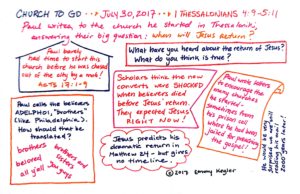 CHURCH TO GO ••• JULY 30, 2017 • 1 THESSALONIANS 4:9-5:11
Paul writes to the church he started in Thessaloniki,
answering their big question: when will Jesus return?
Paul barely
had time to start this
church before he was chased
out of the city by a mob!
ACTS 17:1-9
What have you heard about the return of Jesus?
What do you think is true?
Paul calls the believers
ADELPHOI, "BROTHERS"
(like Philadelphia).
How should that be
translated?
brothers
brothers and sisters
beloved
all y'all
friends
you guys
Scholars think the new
converts were SHOCKED
when believers died
before Jesus' return.
They expected Jesus
RIGHT NOW!
Jesus predicts his
dramatic return in
Matthew 24 - but gives
no timeline.
Paul wrote letters
to encourage the
many churches
he started,
sometimes from
his prison cell
when he had been
jailed for preaching
the gospel!
He would be very
surprised we're still
reading his mail
2000 years later!
© 2017 Emmy Kegler